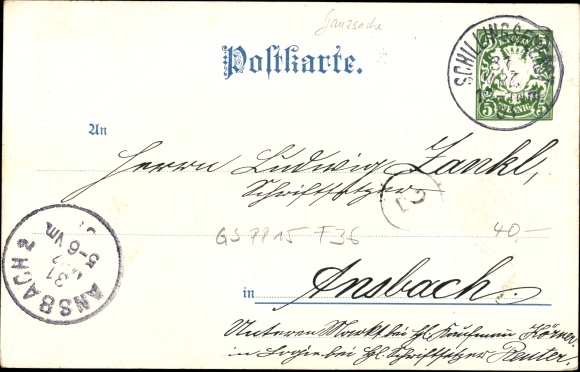 Ganzsache
Postkarte.
SCHILLINGSFÜRST
5
An
Herrn Ludwig Zankl,
Schriftsetzer
GS PP15 F36
40,-
ANSBACH 2
31
5-6 Vm.
in Ansbach.
Unteren Markt bei Hl. Kaufmann Körner
in Logie bei Hl. Schriftsetzer Reuter.